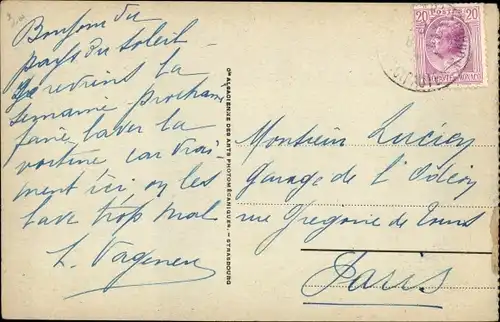 Bonjour du
pays du soleil
Je reviens la
semaine prochaine
faire laver la
voiture car vrai-
ment ici, on les
lave trop mal
L. Vagenen
Cie ALSACIENNE DES ARTS PHOTOMÉCANIQUES — STRASBOURG
20 POSTES 20
MONACO
Monsieur Lucien
Garage de l'Odéon
rue Grégoire de Tours
Paris